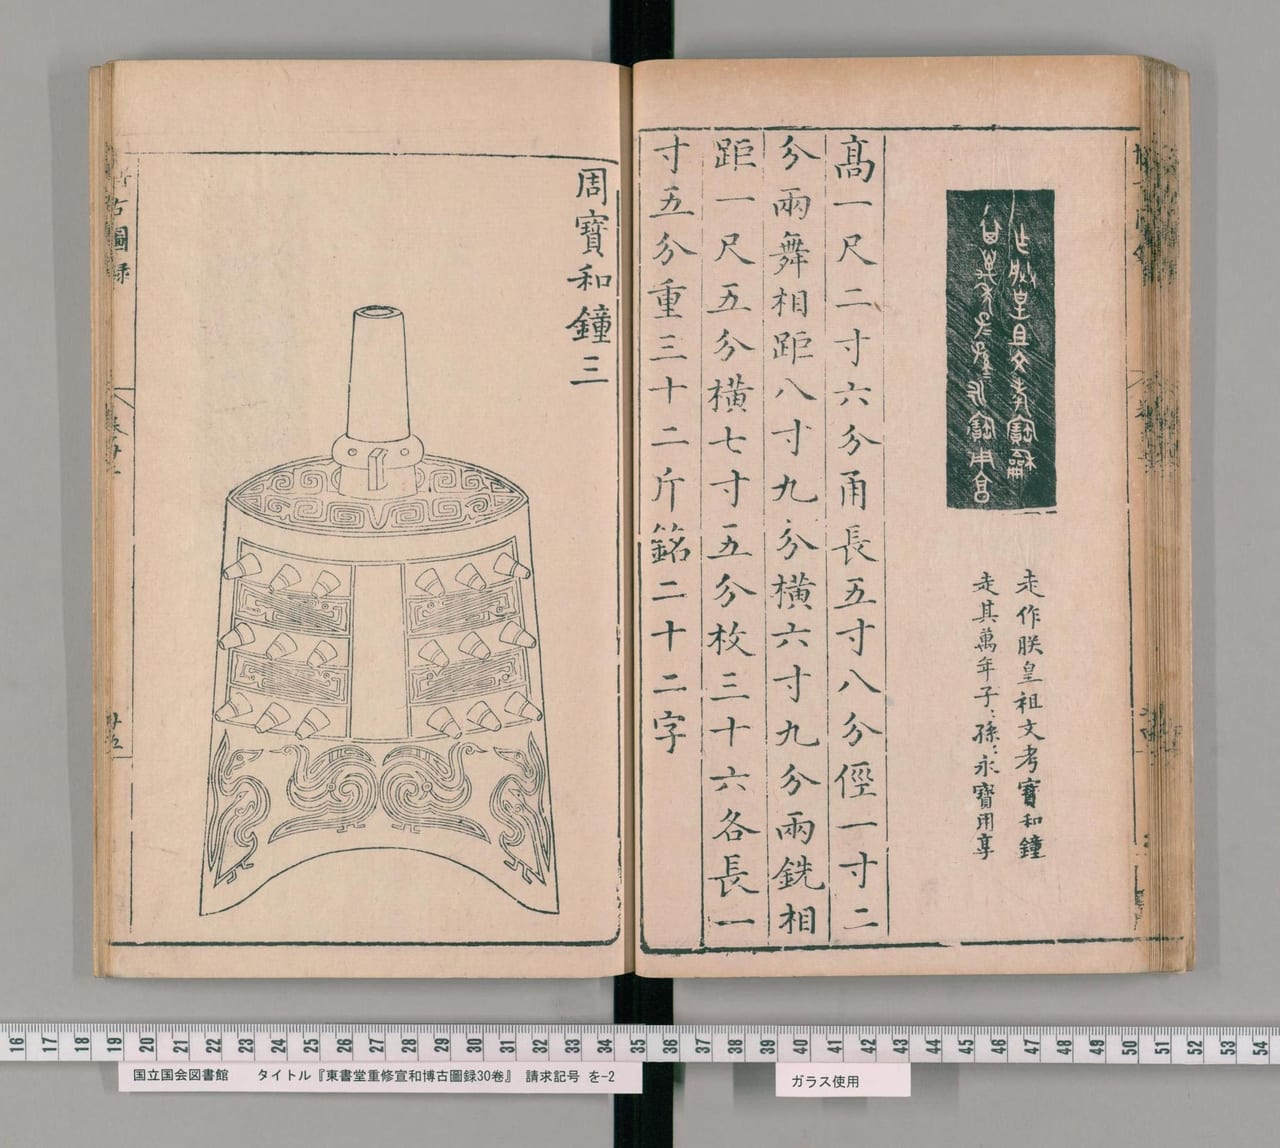 走作朕皇祖文考寶和鐘
走其萬年子〻孫〻永寶用享
高一尺二寸六分甬長五寸八分徑一寸二
分兩舞相距八寸九分橫六寸九分兩銑相
距一尺五分橫七寸五分枚三十六各長一
寸五分重三十二斤銘二十二字
周寶和鐘三
博古圖録
卷廿二
廿五
16 17 18 19 20 21 22 23 24 25 26 27 28 29 30 31 32 33 34 35 36 37 38 39 40 41 42 43 44 45 46 47 48 49 50 51 52 53 54
国立国会図書館 タイトル『東書堂重修宣和博古圖録30巻』 請求記号 を-2
ガラス使用